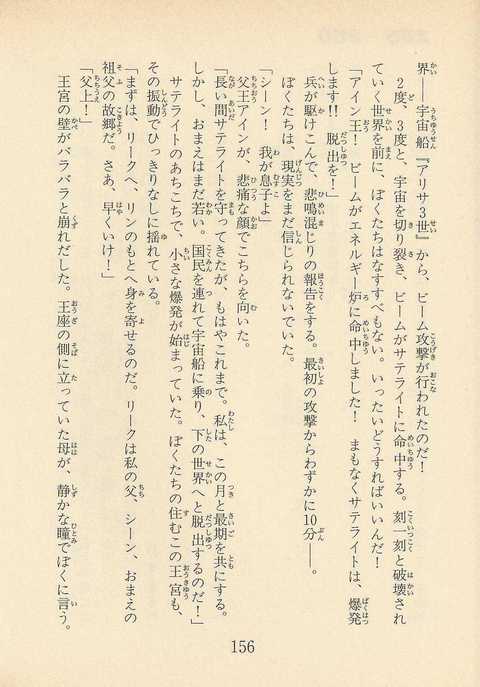 界――宇宙船『アリサ３世』から、ビーム攻撃が行われたのだ！
２度、３度と、宇宙を切り裂き、ビームがサテライトに命中する。刻一刻と破壊され
ていく世界を前に、ぼくたちはなすすべもない。いったいどうすればいいんだ！
「アイン王！　ビームがエネルギー炉に命中しました！　まもなくサテライトは、爆発
します!!　脱出を！」
兵が駆けこんで、悲鳴混じりの報告をする。最初の攻撃からわずかに10分――。
ぼくたちは、現実をまだ信じられないでいた。
「シーン！　我が息子よ」
父王アインが、悲痛な顔でこちらを向いた。
「長い間サテライトを守ってきたが、もはやこれまで。私は、この月と最期を共にする。
しかし、おまえはまだ若い。国民を連れて宇宙船に乗り、下の世界へと脱出するのだ！」
サテライトのあちこちで、小さな爆発が始まっていた。ぼくたちの住むこの王宮も、
その振動でひっきりなしに揺れている。
「まずは、リークへ、リンのもとへ身を寄せるのだ。リークは私の父、シーン、おまえの
祖父の故郷だ。さあ、早くいけ！」
「父上！」
王宮の壁がバラバラと崩れだした。王座の側に立っていた母が、静かな瞳でぼくに言う。
156